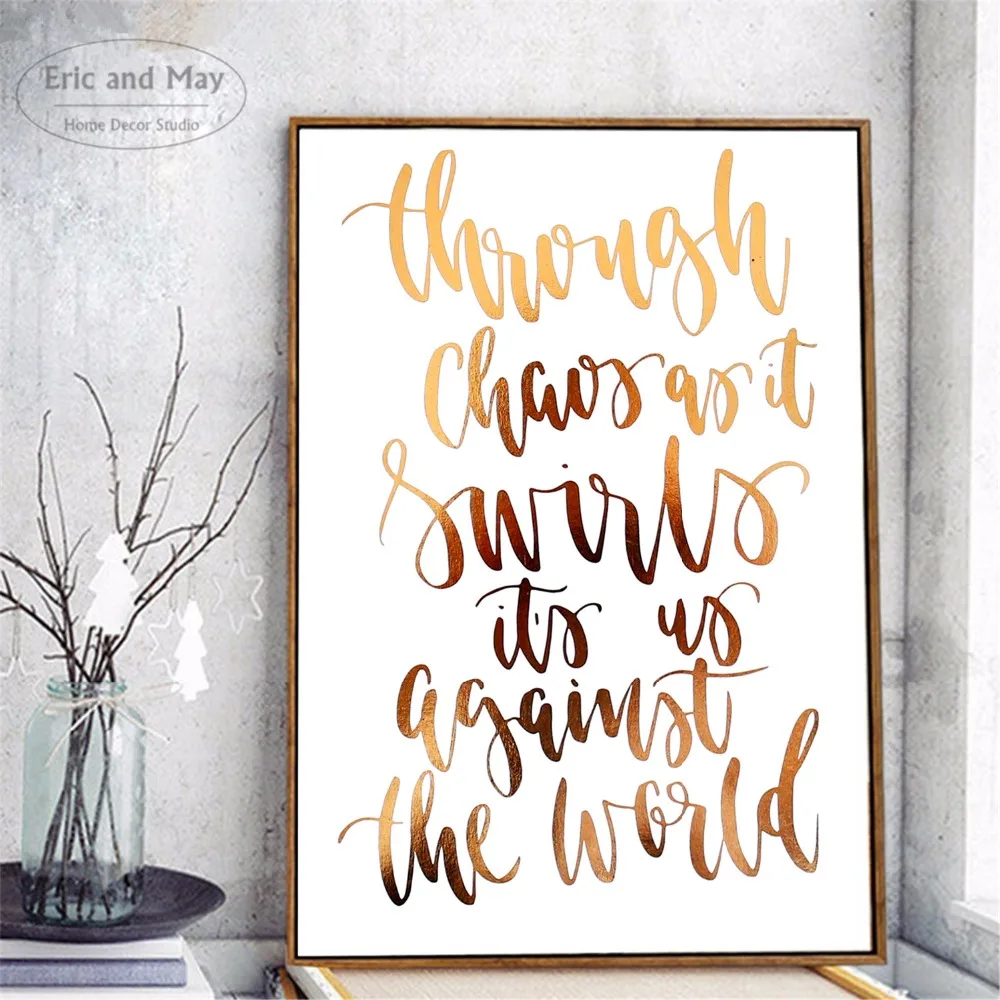 Eric and May
Home Decor Studio
through
Chaos as it
Swirls
it's us
against
the world